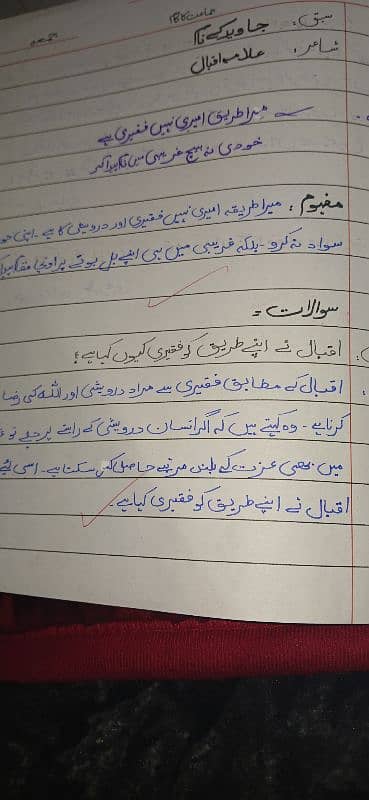 سبق: جاوید کے نام
شاعر: علامہ اقبال
میرا طریق امیری نہیں فقیری ہے
خودی نہ بیچ غریبی میں نام پیدا کر
مفہوم: میرا طریقہ امیری نہیں فقیری اور درویشی کا ہے۔ اپنی
سودا نہ کرو۔ بلکہ غریبی میں ہی اپنے بل بوتے پر اونچا مقام
سوالات۔
اقبال نے اپنے طریق کو فقیری کیوں کہا ہے؟
اقبال کے مطابق فقیری سے مراد درویشی اور اللہ کی رضا
کرنا ہے۔ وہ کہتے ہیں کہ اگر انسان درویشی کے راستے پر چلے تو
میں بھی عزت کے بلند مرتبے حاصل کر سکتا ہے۔ اسی لئے
اقبال نے اپنے طریق کو فقیری کہا ہے۔